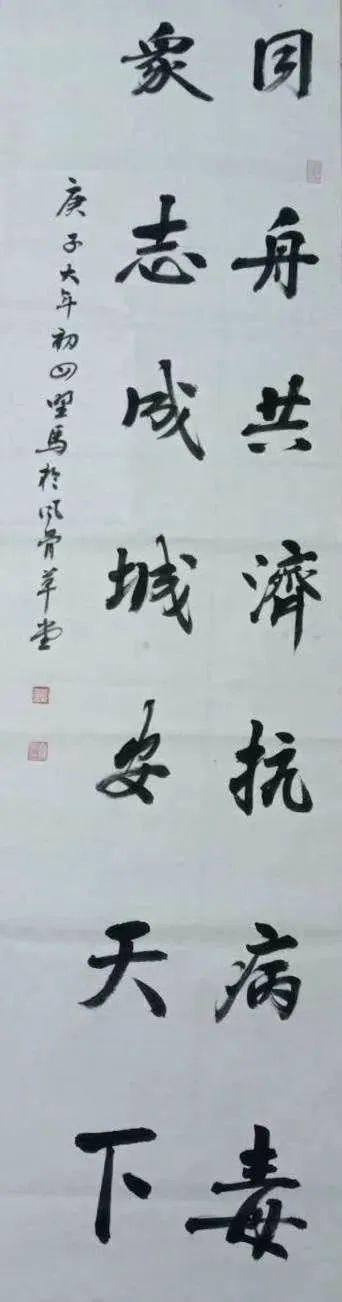 同舟共濟抗病毒
衆志成城安天下
庚子大年初四墅馬於風骨草堂